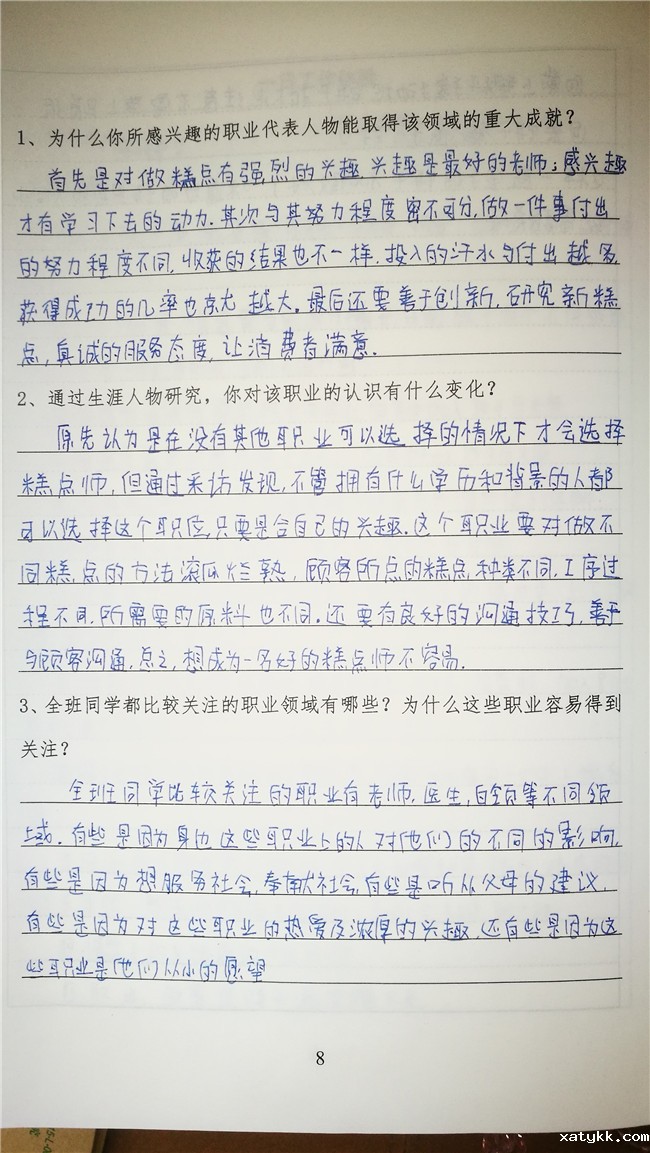 1、为什么你所感兴趣的职业代表人物能取得该领域的重大成就？
首先是对做糕点有强烈的兴趣,兴趣是最好的老师；感兴趣
才有学习下去的动力.其次与其努力程度密不可分,做一件事付出
的努力程度不同,收获的结果也不一样.投入的汗水与付出越多,
获得成功的几率也就越大。最后还要善于创新,研究新糕
点,真诚的服务态度,让消费者满意.
2、通过生涯人物研究，你对该职业的认识有什么变化？
原先认为是在没有其他职业可以选择的情况下才会选择
糕点师,但通过采访发现,不管拥有什么学历和背景的人都
可以选择这个职位,只要是合自己的兴趣.这个职业要对做不
同糕点的方法滚瓜烂熟,顾客所点的糕点种类不同,工序过
程不同,所需要的原料也不同.还要有良好的沟通技巧,善于
与顾客沟通.总之,想成为一名好的糕点师不容易.
3、全班同学都比较关注的职业领域有哪些？为什么这些职业容易得到
关注？
全班同学比较关注的职业有老师,医生,白领等不同领
域.有些是因为身边这些职业上的人对他们的不同的影响,
有些是因为想服务社会,奉献社会,有些是听从父母的建议.
有些是因为对这些职业的热爱及浓厚的兴趣,还有些是因为这
些职业是他们从小的愿望
8
xatykk.com